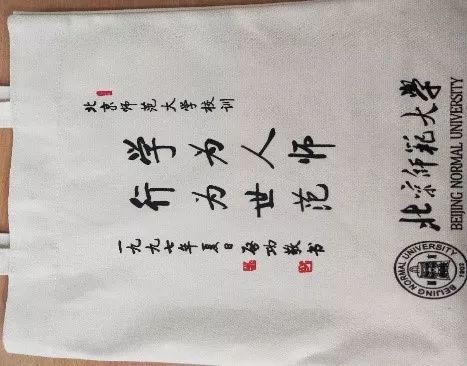 北京师范大学校训
学为人师
行为世范
一九九七年夏日启功敬书
北京师范大学
BEIJING NORMAL UNIVERSITY
BEIJING NORMAL UNIVERSITY
1902